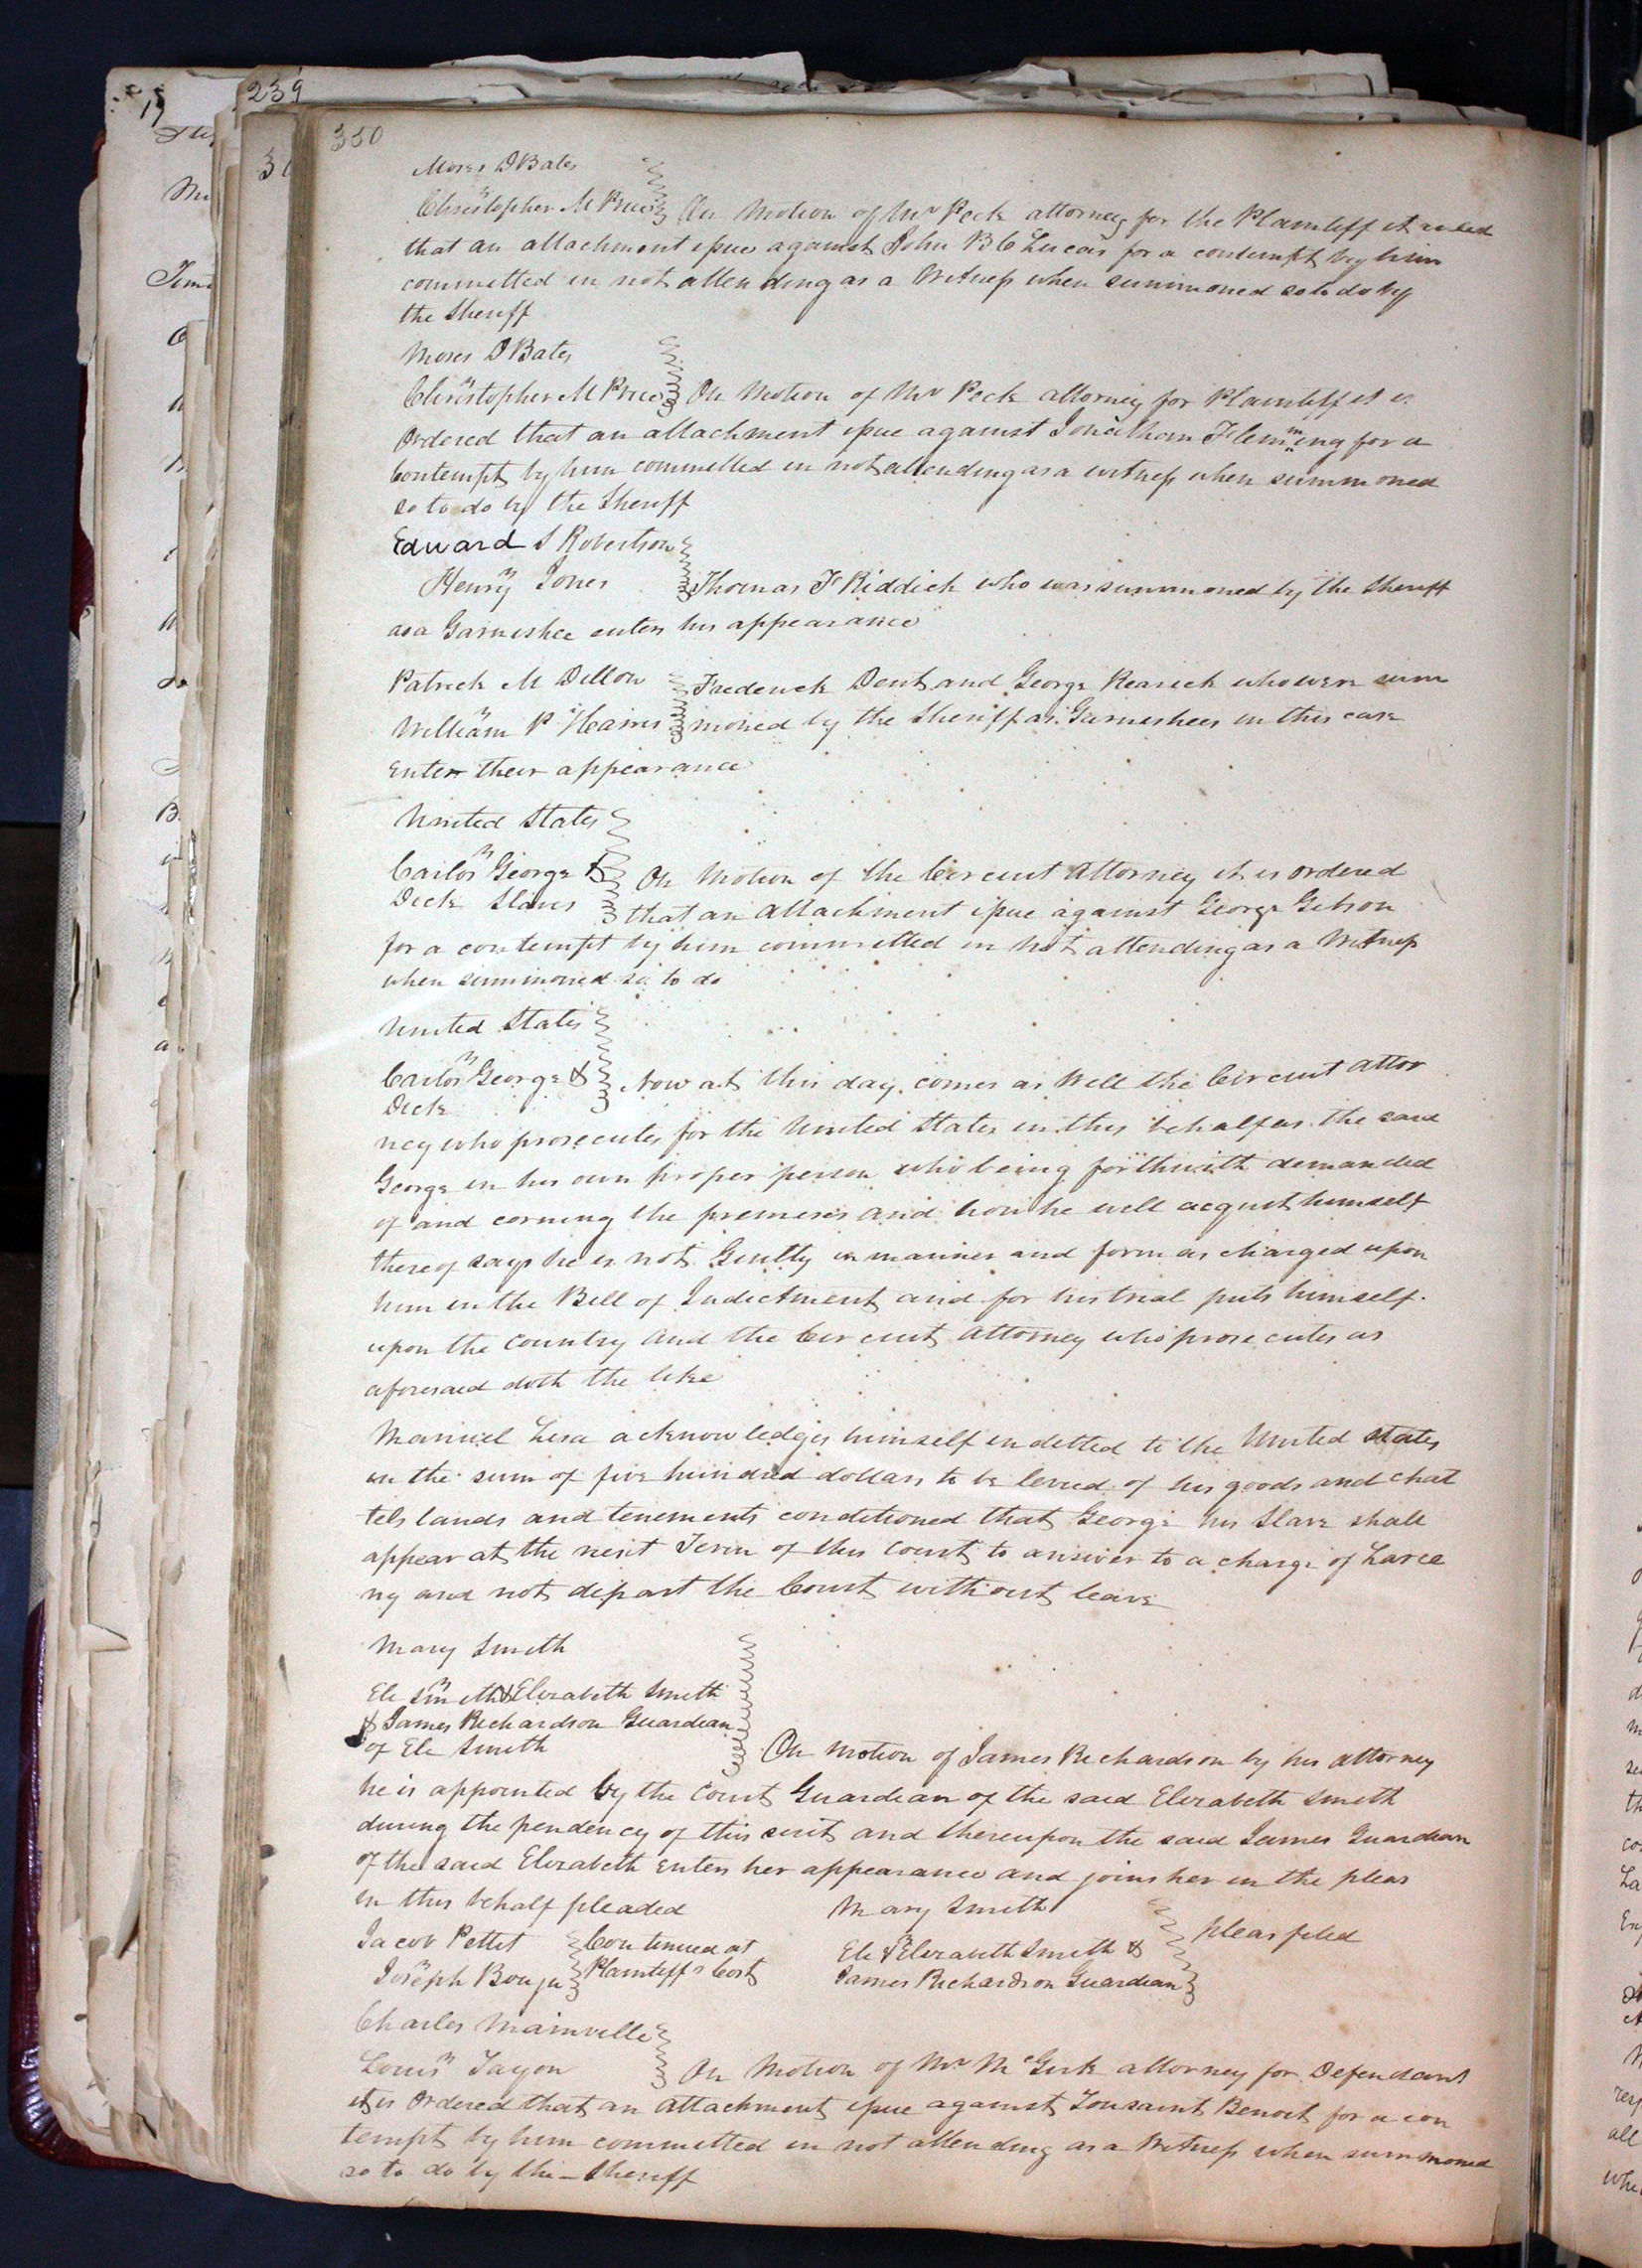 239
350
Moses D Bates
vs
Christopher M Price On Motion of Mr Peck attorney for the Plaintiff it ruled
that an attachment issue against John B C Lucas for a contempt by him
committed in not attending as a Witness when summoned so to do by
the Sheriff
Moses D Bates
vs
Christopher M Price On Motion of Mr Peck attorney for Plaintiff it is
Ordered that an attachment issue against Jonathan Flemming for a
Contempt by him committed in not attending as a witness when summoned
so to do by the Sheriff
Edward S Robertson
vs
Henry Jones Thomas F Riddick who was summoned by the Sheriff
as a Garnishee enters his appearance
Patrick M Dillon Frederick Dent and George Rearick who were sum
vs
William P Haines moned by the Sheriff as Garnishees in this case
enter their appearance
United States
vs
Carlos George &
Dick Slaves On Motion of the Circuit Attorney it is ordered
that an attachment issue against George Gibson
for a contempt by him committed in not attending as a Witness
when summoned so to do
United States
vs
Carlos George &
Dick Now at this day comes as Well the Circuit attor
ney who prosecutes for the United States in this behalf as the said
George in his own proper person who being forthwith demanded
of and corning the premises and how he will acquit himself
thereof says he is not Guilty in manner and form as charged upon
him in the Bill of Indictment and for his trial puts himself
upon the Country and the Circuit Attorney who prosecutes as
aforesaid doth the like
Manuel Lisa acknowledges himself indetted to the United States
in the sum of five hundred dollars to be levied of his goods and chat
tels lands and tenements conditioned that George his Slave shall
appear at the next Term of this Court to answer to a charge of Larce
ny and not depart the Court without leave
Mary Smith
vs
Eli Smith & Elizabeth Smith
& James Richardson Guardian
of Eli Smith On motion of James Richardson by his attorney
he is appointed by the Court Guardian of the said Elizabeth Smith
during the pendency of this suit and thereupon the said James Guardian
of the said Elizabeth Enters her appearance and joins her in the pleas
in this behalf pleaded
Jacob Pettit Continued at
vs
Joseph Bouju Plaintiff's Cost
Mary Smith
vs
Eli & Elizabeth Smith &
James Richardson Guardian pleas filed
Charles Mainville
vs
Louis Tayon On Motion of Mr McGirk attorney for Defendant
it is Ordered that an attachment issue against Tousaint Benoit for a con
tempt by him committed in not attending as a Witness when summoned
so to do by the Sheriff